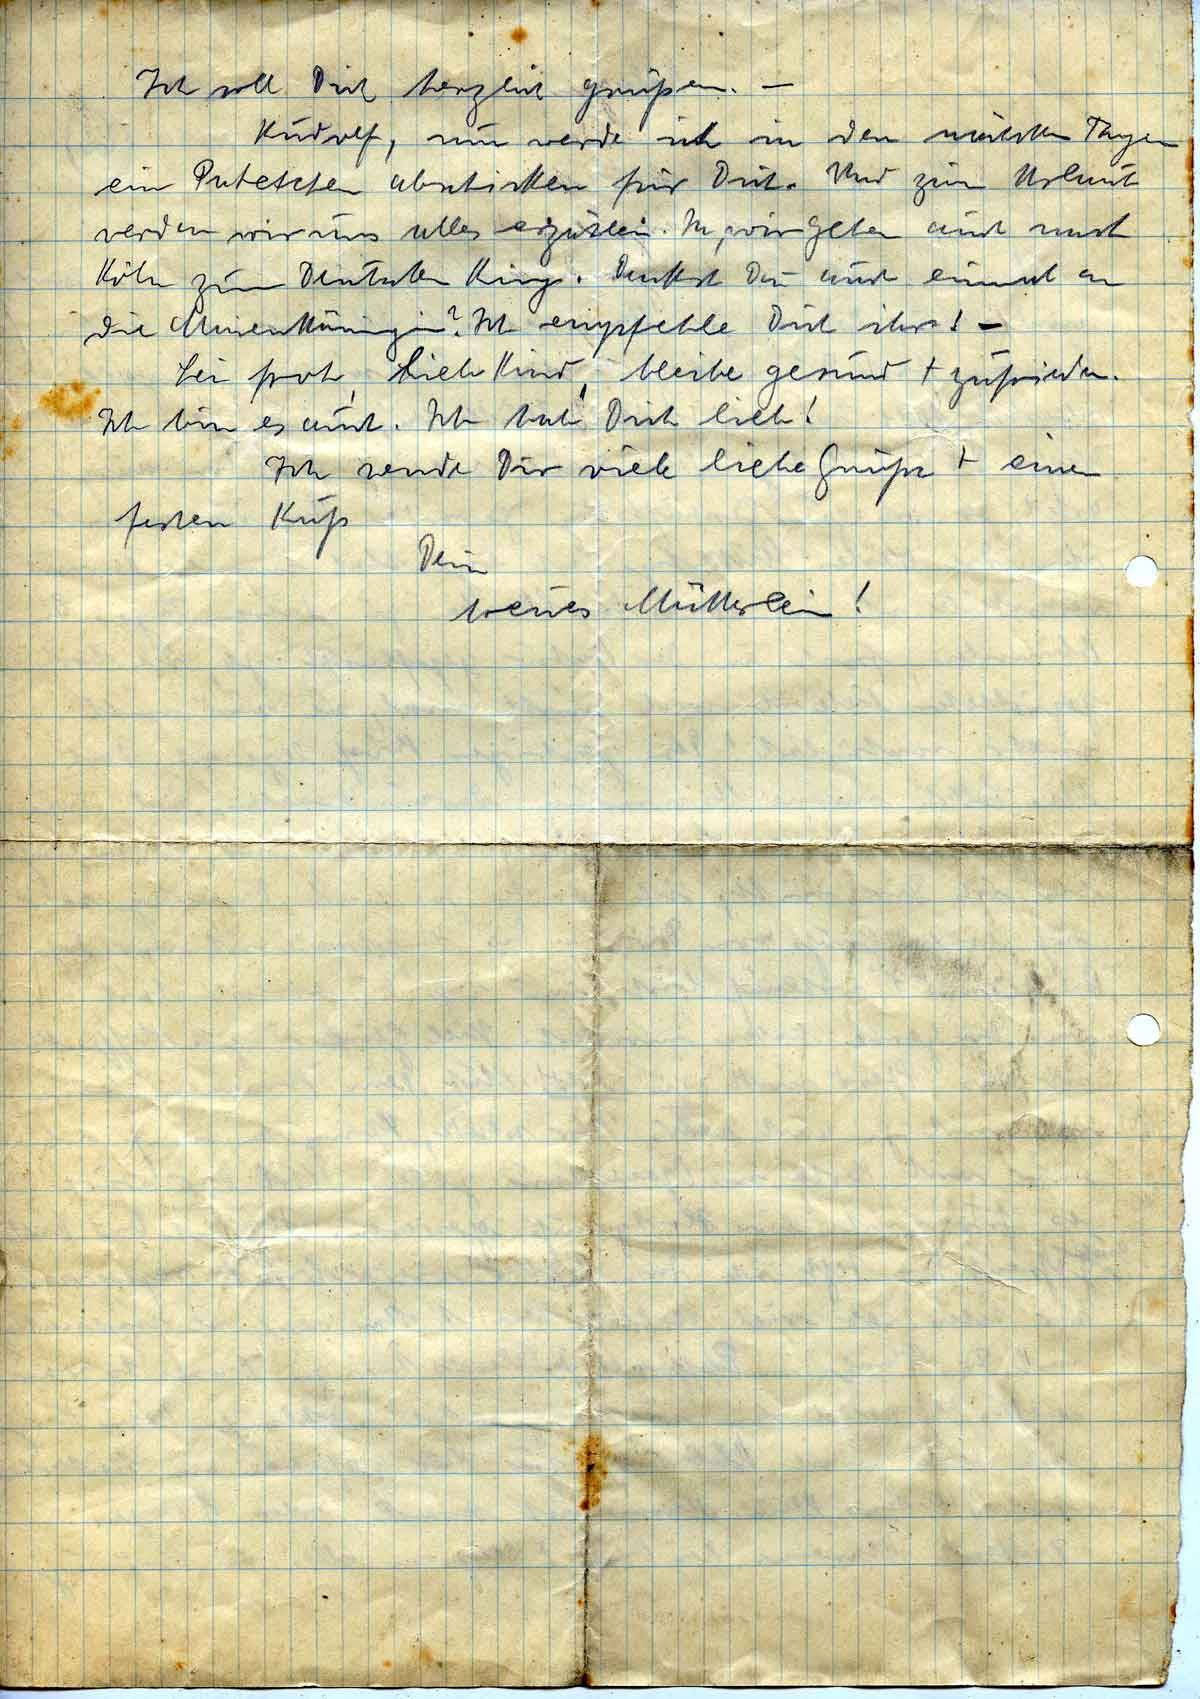 Ich soll Dich herzlich grüßen. –
Rudolf, nun werde ich in den nächsten Tagen
ein Paketchen abschicken für Dich. Und zum Urlaub
werden wir uns alles erzählen. Ja, wir gehen auch nach
Köln zum Deutschen Ring. Denkst Du auch einmal an
die Maienkönigin? Ich empfehle Dich ihr! –
Sei froh, lieb Kind, bleibe gesund + zufrieden.
Ich bin es auch. Ich hab' Dich lieb!
Ich sende Dir viele liebe Grüße + einen
festen Kuß
Dein
treues Mütterlein!